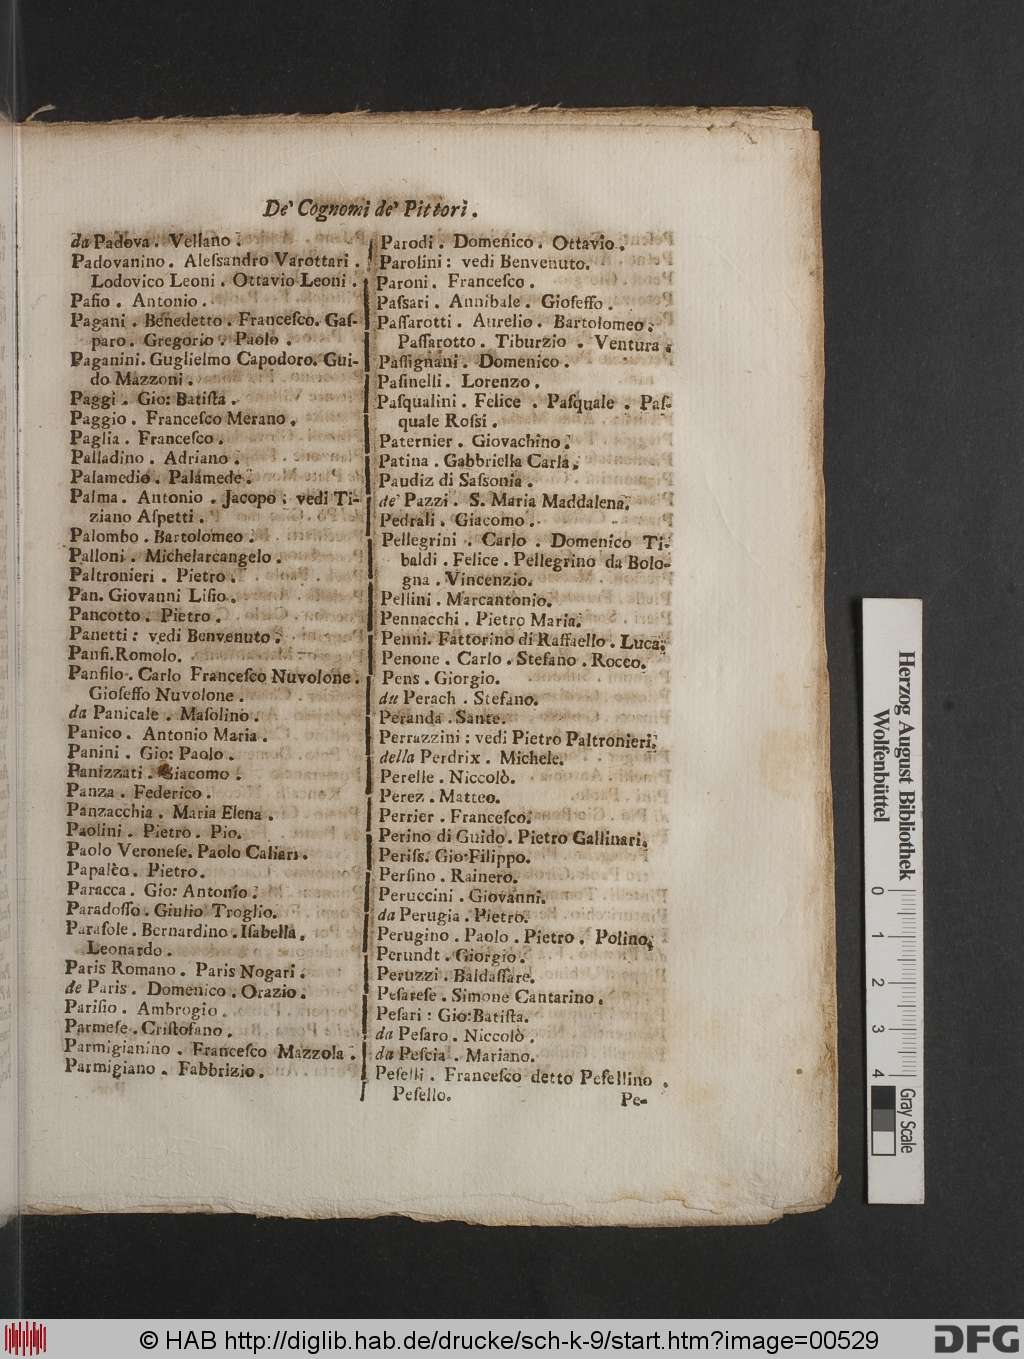 De' Cognomi de' Pittori.
da Padova. Vellano.
Padovanino. Aleſsandro Varottari.
Lodovico Leoni. Ottavio Leoni.
Paſio. Antonio.
Pagani. Benedetto. Franceſco. Gaſ-
paro. Gregorio. Paolo.
Paganini. Guglielmo Capodoro. Gui-
do Mazzoni.
Paggi. Gio: Batiſta.
Paggio. Franceſco Merano.
Paglia. Franceſco.
Palladino. Adriano.
Palamedio. Palamede.
Palma. Antonio. Jacopo: vedi Ti-
ziano Aſpetti.
Palombo. Bartolomeo.
Palloni. Michelarcangelo.
Paltronieri. Pietro.
Pan. Giovanni Liſio.
Pancotto. Pietro.
Panetti: vedi Benvenuto.
Panfi. Romolo.
Panfilo. Carlo Franceſco Nuvolone.
Gioſeffo Nuvolone.
da Panicale. Maſolino.
Panico. Antonio Maria.
Panini. Gio: Paolo.
Panizzati. Giacomo.
Panza. Federico.
Panzacchia. Maria Elena.
Paolini. Pietro. Pio.
Paolo Veroneſe. Paolo Caliari.
Papalèo. Pietro.
Paracca. Gio: Antonio.
Paradoſſo. Giulio Troglio.
Paraſole. Bernardino. Iſabella.
Leonardo.
Paris Romano. Paris Nogari.
de Paris. Domenico. Orazio.
Pariſio. Ambrogio.
Parmeſe. Criſtofano.
Parmigianino. Franceſco Mazzola.
Parmigiano. Fabbrizio.
Parodi. Domenico. Ottavio.
Parolini: vedi Benvenuto.
Paroni. Franceſco.
Paſsari. Annibale. Gioſeffo.
Paſſarotti. Aurelio. Bartolomeo.
Paſſarotto. Tiburzio. Ventura.
Paſſignani. Domenico.
Paſinelli. Lorenzo.
Paſqualini. Felice. Paſquale. Paſ-
quale Roſsi.
Paternier. Giovachino.
Patina. Gabbriella Carla.
Paudiz di Saſsonia.
de' Pazzi. S. Maria Maddalena.
Pedrali. Giacomo.
Pellegrini. Carlo. Domenico Ti-
baldi. Felice. Pellegrino da Bolo-
gna. Vincenzio.
Pellini. Marcantonio.
Pennacchi. Pietro Maria.
Penni. Fattorino di Raffaello. Luca.
Penone. Carlo. Stefano. Rocco.
Pens. Giorgio.
du Perach. Stefano.
Peranda. Sante.
Perrazzini: vedi Pietro Paltronieri.
della Perdrix. Michele.
Perelle. Niccolò.
Perez. Matteo.
Perrier. Franceſco.
Perino di Guido. Pietro Gallinari.
Periſs. Gio: Filippo.
Perſino. Rainero.
Peruccini. Giovanni.
da Perugia. Pietro.
Perugino. Paolo. Pietro. Polino.
Perundt. Giorgio.
Peruzzi. Baldaſſare.
Peſareſe. Simone Cantarino.
Peſari: Gio: Batiſta.
da Peſaro. Niccolò.
da Peſcia. Mariano.
Peſelli. Franceſco detto Peſellino.
Peſello.
Pe-
Herzog August Bibliothek
Wolfenbüttel
0 1 2 3 4
Gray Scale
© HAB http://diglib.hab.de/drucke/sch-k-9/start.htm?image=00529
DFG